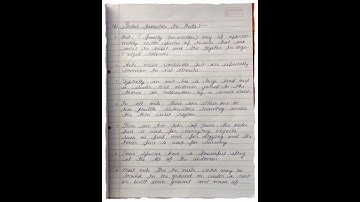 Social behaviour in Ants :-
Ant (family formicidae) any of approx-
imately 10,000 species of insects that are
social in habit and live together in orga-
nized colonies
Ants occur worldwide but are especially
common in hot climates
Typically an ant has a large head and
a slender oval abdomen joined to the
thorax, or midsection by a small waist
In all ants there are either one or
two finlike extensions running across
the thin waist region
There are two sets of jaws the outer
pair is used for carrying objects
such as food and for digging and the
inner pair is used for chewing
Some species have a powerful sting
at the tip of the abdomen
Most ants live in nests, which may be
located in the ground or under a rock
or built above ground and made of